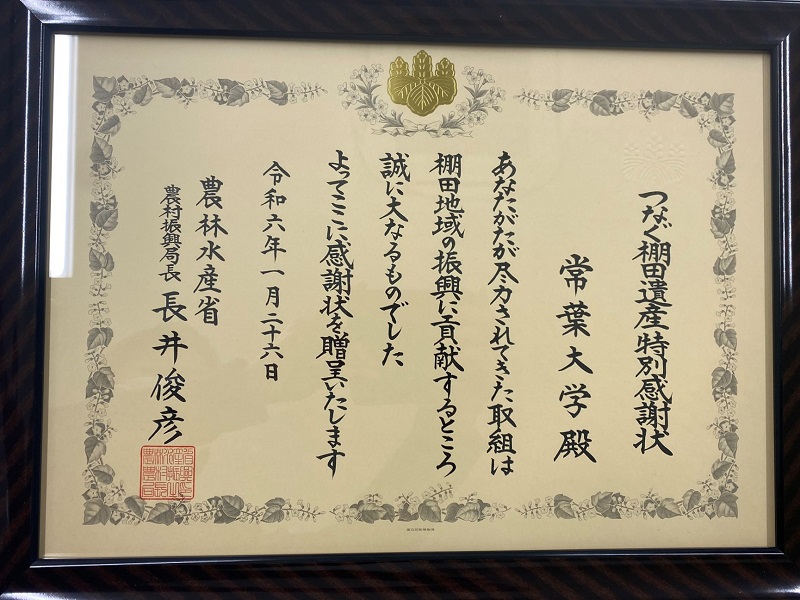 つなぐ棚田遺産特別感謝状
常葉大学殿
あなたがたが尽力されてきた取組は
棚田地域の振興に貢献するところ
誠に大なるものでした
よってここに感謝状を贈呈いたします
令和六年一月二十六日
農林水産省
農村振興局長 長井俊彦